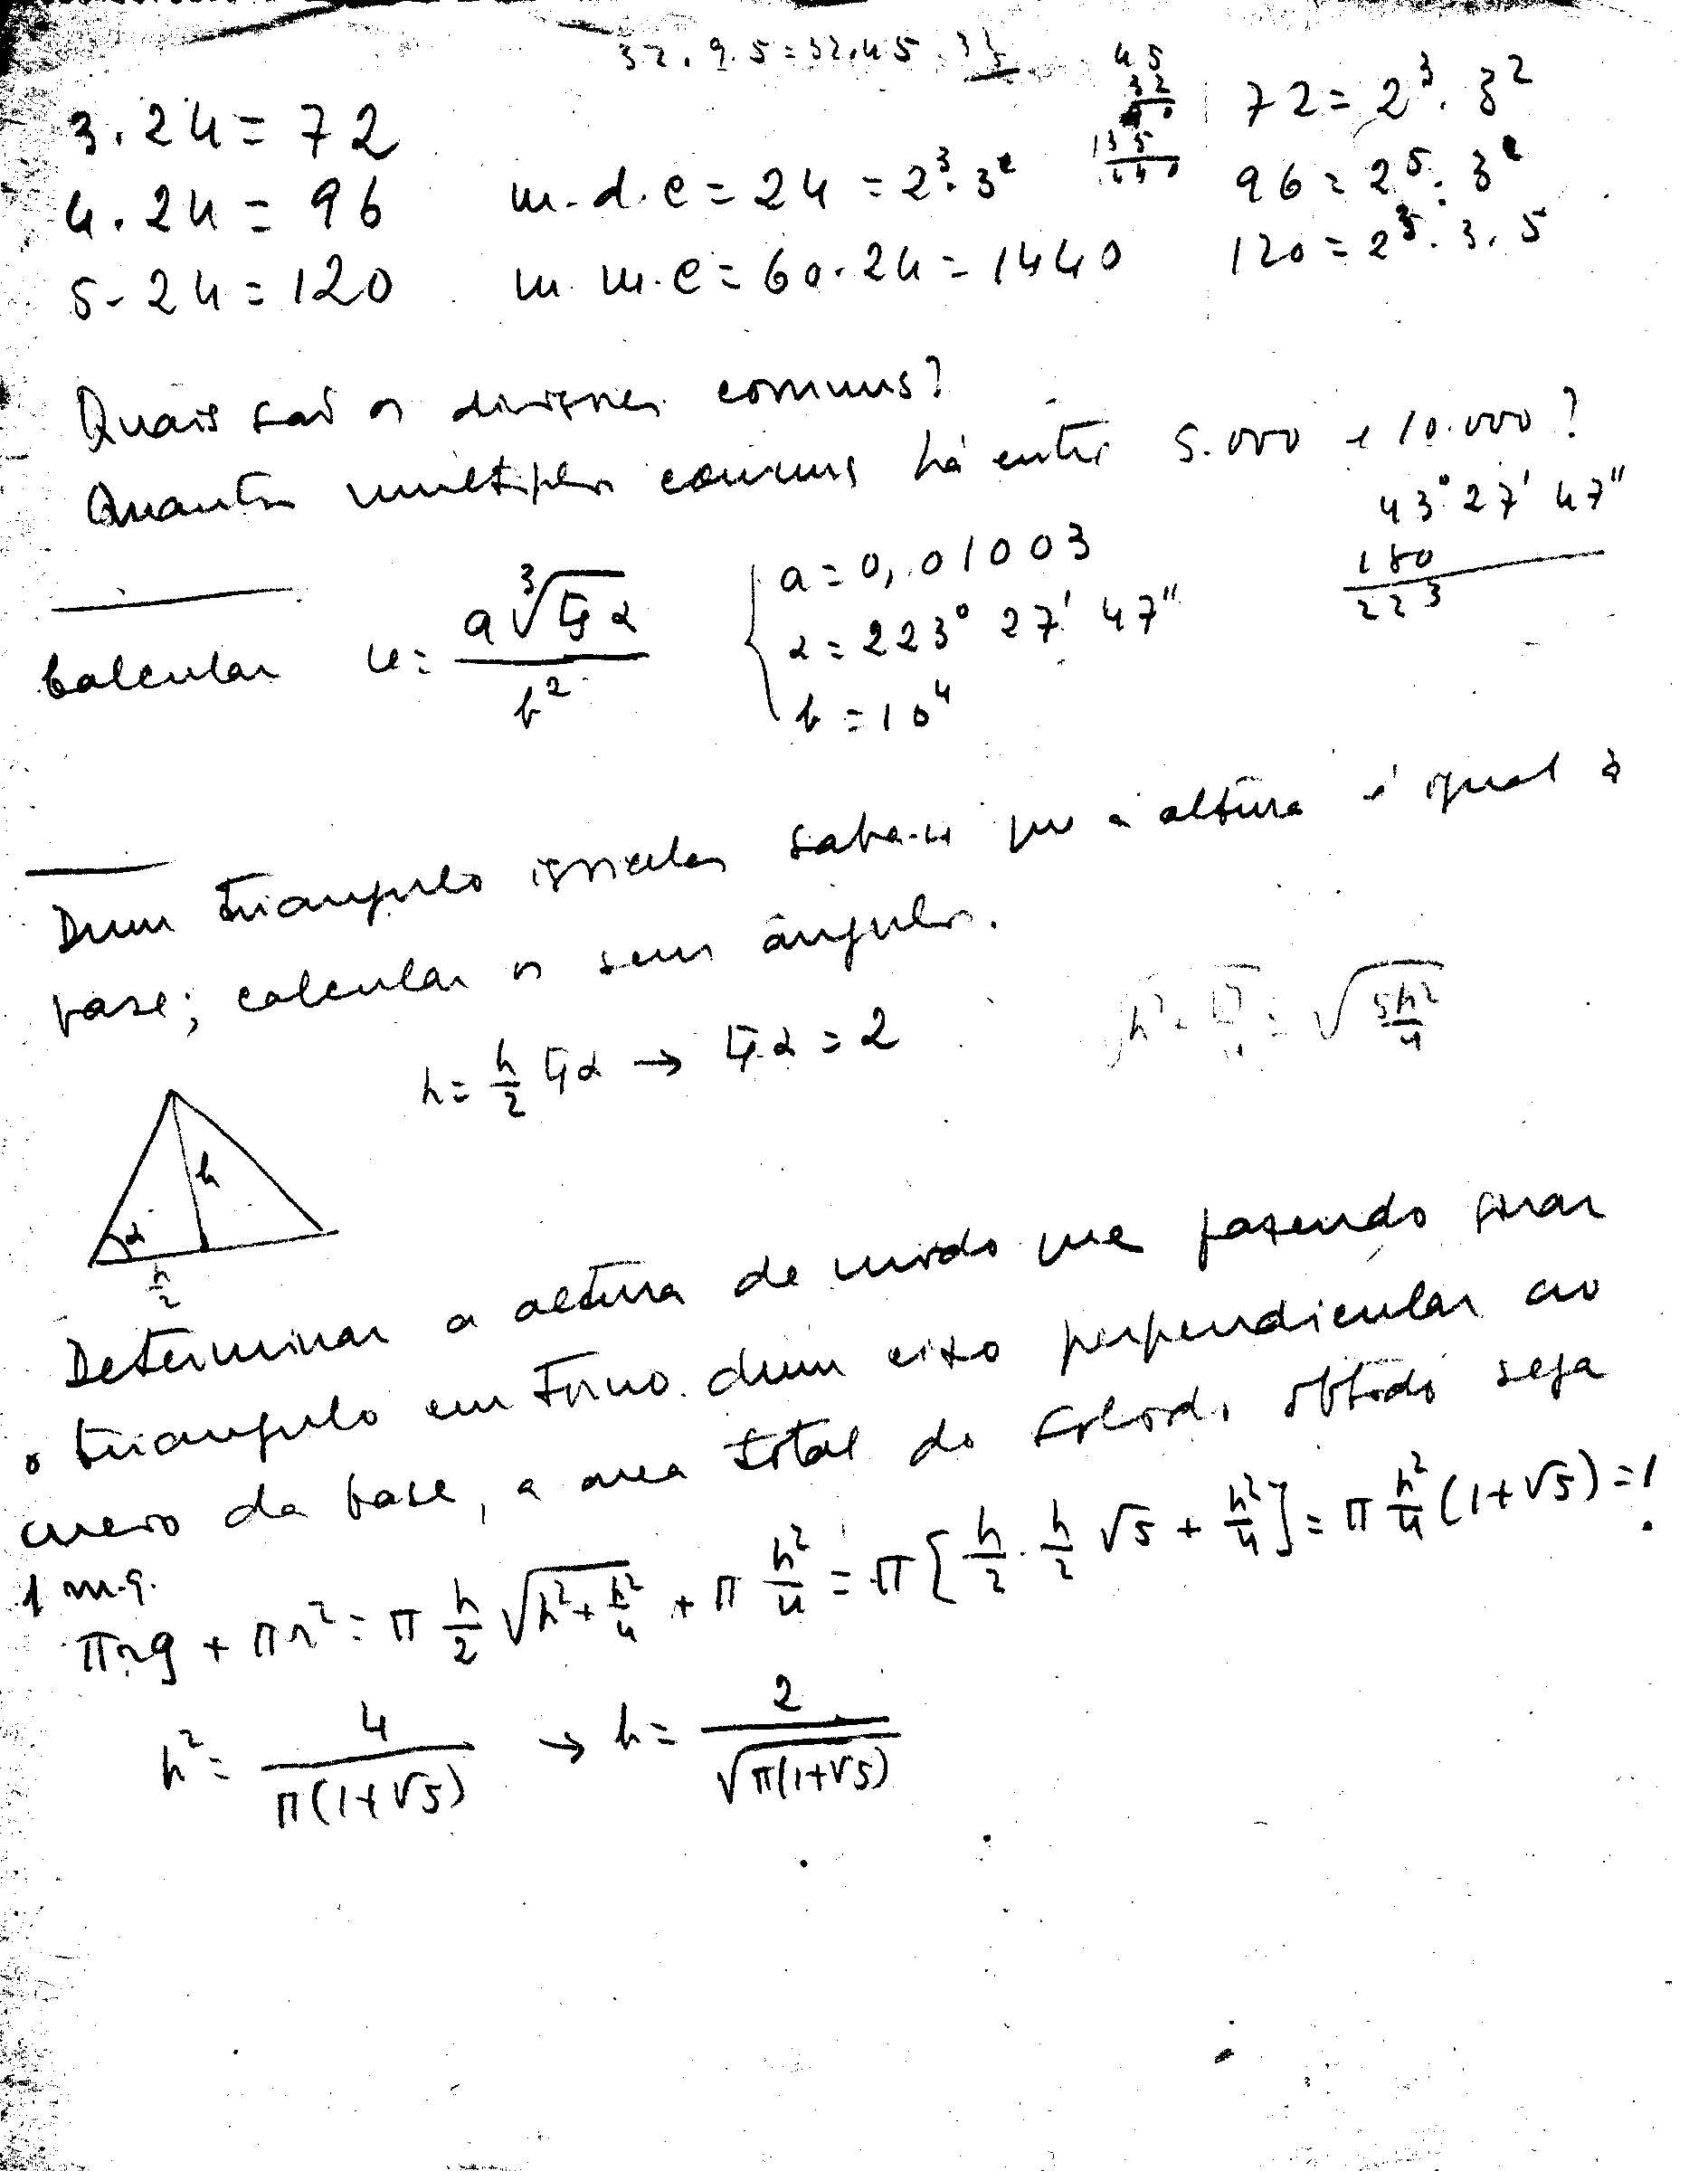 32 . 9 . 5 = 32 . 45
45
32
90
135
1440
3 . 24 = 72
4 . 24 = 96
5 - 24 = 120
m. d. c = 24 = 2³ . 3
m. m. c = 60 . 24 = 1440
72 = 2³ . 3²
96 = 2⁵ . 3
120 = 2³ . 3 . 5
Quais são os divisores comuns?
Quantos multiplos comuns há entre 5.000 e 10.000?
43° 27' 47"
180
223
Calcular u = a ∛(tg α) / b²
{ a = 0,01003
α = 223° 27' 47"
b = 10⁴
Dum triangulo isosceles sabe-se que a altura é igual à
base; calcular os seus ângulos.
h = h/2 tg α → tg α = 2
h² + h²/4 = √(5h²/4)
h
α
h/2
Determinar a altura de modo que fazendo girar
o triangulo em torno dum eixo perpendicular ao
meio da base, a area total do solido obtido seja
1 m.q.
πrg + πr² = π h/2 √(h² + h²/4) + π h²/4 = π [h/2 . h/2 √5 + h²/4] = π h²/4 (1+√5) = 1
h² = 4 / π(1+√5) → h = 2 / √(π(1+√5))